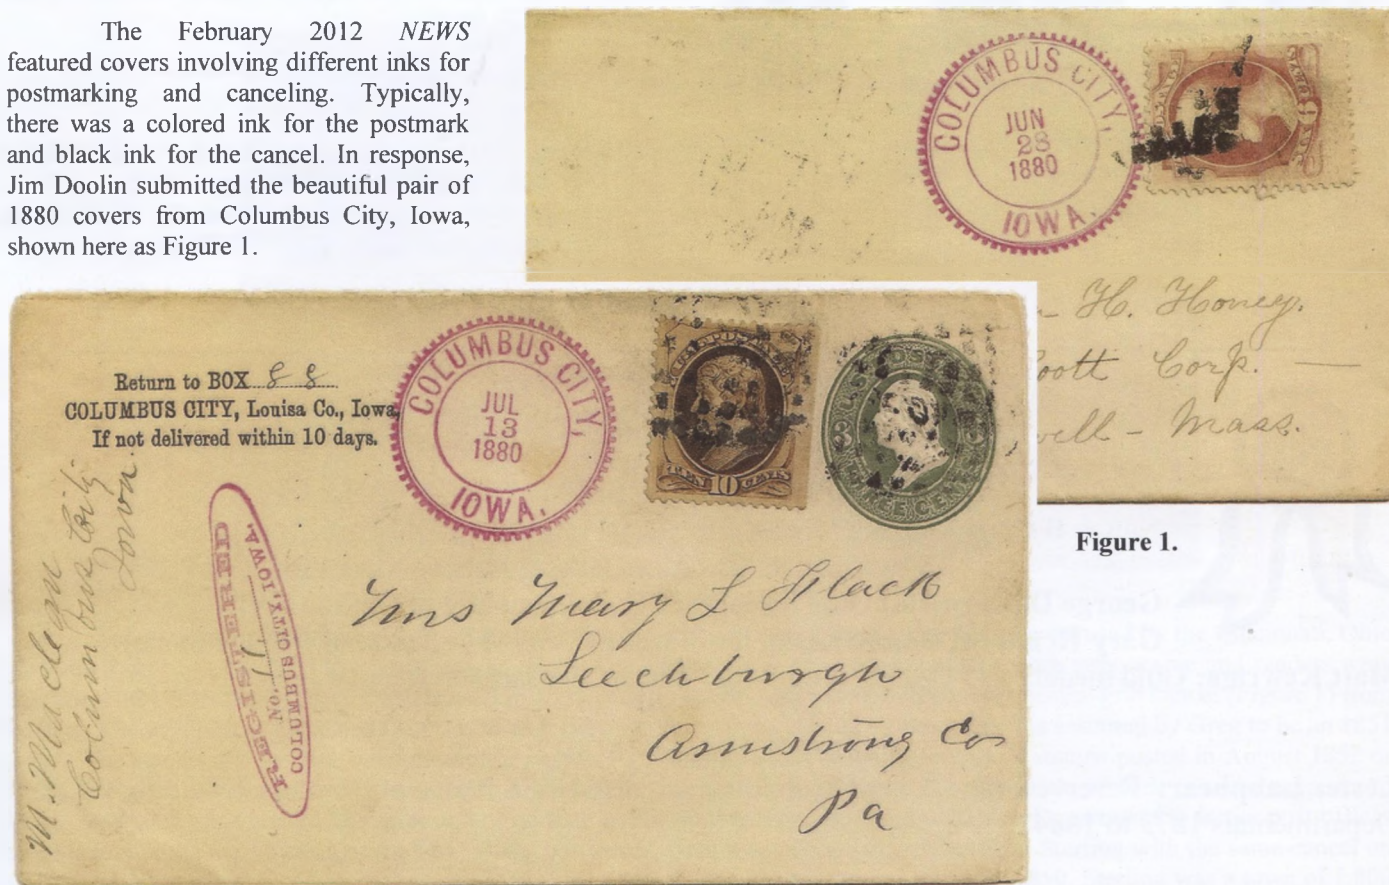 The February 2012 NEWS
featured covers involving different inks for
postmarking and canceling. Typically,
there was a colored ink for the postmark
and black ink for the cancel. In response,
Jim Doolin submitted the beautiful pair of
1880 covers from Columbus City, Iowa,
shown here as Figure 1.
COLUMBUS CITY,
JUN
28
1880
IOWA.
H. Honey.
oott Corp.
well - Mass.
Figure 1.
Return to BOX 88
COLUMBUS CITY, Louisa Co., Iowa,
If not delivered within 10 days.
COLUMBUS CITY,
JUL
13
1880
IOWA.
TEN 10 CENTS
U.S. POSTAGE
THREE CENTS
REGISTERED
No. 11
COLUMBUS CITY, IOWA
M. McClean
Columbus City
Iowa.
Mrs Mary L Flack
Leechburgh
Armstrong Co
Pa